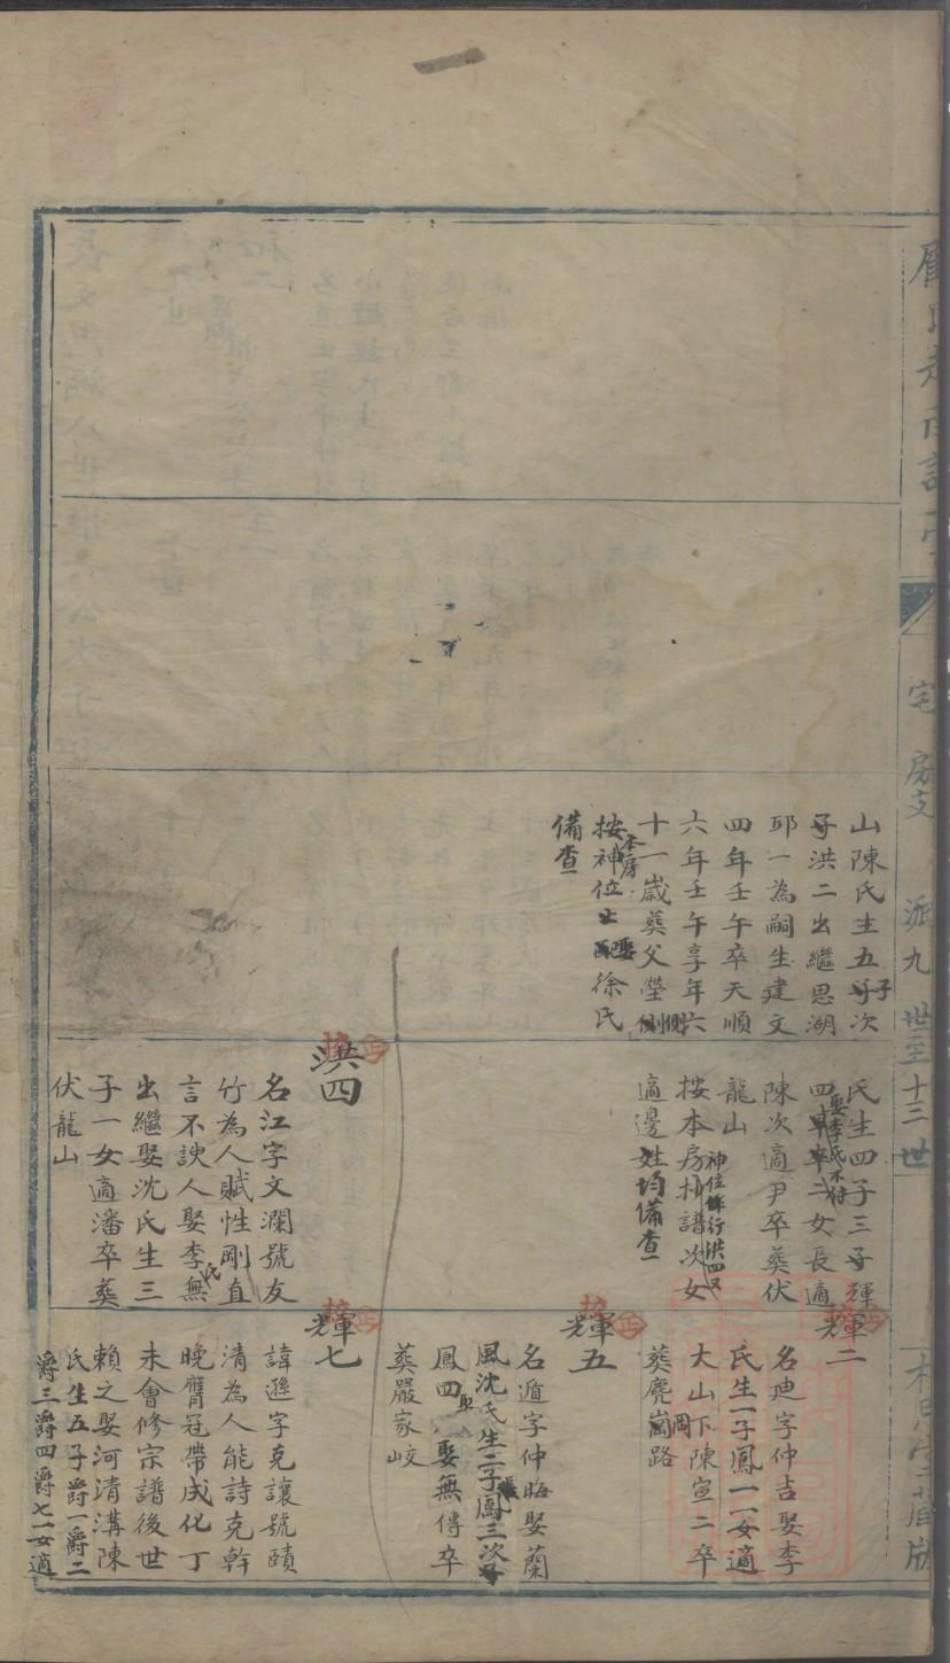 宅
房支
派九世至十三世
山陳氏生五子次
子洪二出繼思湖
邱一為嗣生建文
四年壬午卒天順
六年壬午享年六
十一歲葬父塋側
本房
按神位上娶徐氏
備查
氏生四子三子輝
四早卒二女長適
娶李氏不符
陳次適尹卒葬伏
龍山
神位條行洪四又
按本房抄譜次女
適邊姓均備查
洪四
名江字文瀾號友
竹為人賦性剛直
言不諛人娶李氏無
出繼娶沈氏生三
子一女適潘卒葬
伏龍山
輝二
名迪字仲吉娶李
氏生一子鳳一一女適
大山下陳宣二卒
葬麂岡路
輝五
名遁字仲晦娶蘭
風沈氏生二子鳳三次子
鳳四娶無傳卒
葬嚴家岐
輝七
諱遜字克讓號頤
清為人能詩克幹
晚膺冠帶成化丁
未會修宗譜後世
賴之娶河清溝陳
氏生五子爵一爵二
爵三爵四爵七一女適